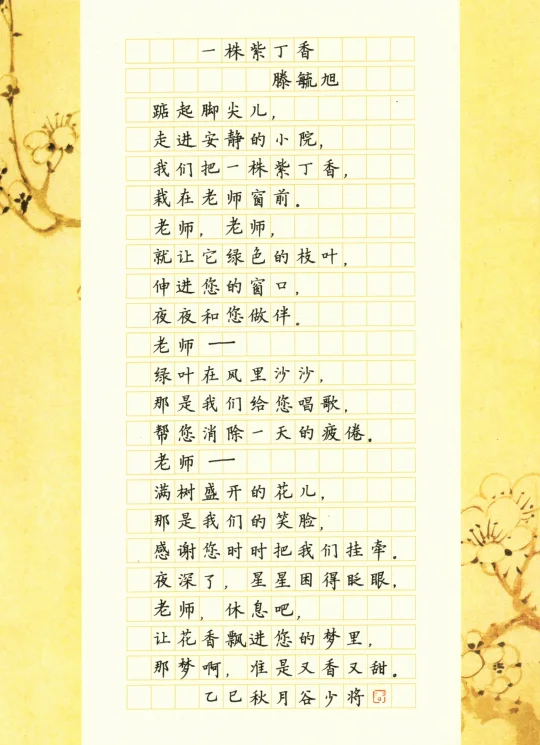 一株紫丁香
滕毓旭
踮起脚尖儿,
走进安静的小院,
我们把一株紫丁香,
栽在老师窗前.
老师, 老师,
就让它绿色的枝叶,
伸进您的窗口,
夜夜和您做伴.
老师 ——
绿叶在风里沙沙,
那是我们给您唱歌,
帮您消除一天的疲倦.
老师 ——
满树盛开的花儿,
那是我们的笑脸,
感谢您时时把我们挂牵.
夜深了, 星星困得眨眼,
老师, 休息吧,
让花香飘进您的梦里,
那梦啊, 准是又香又甜.
乙巳秋月谷少将